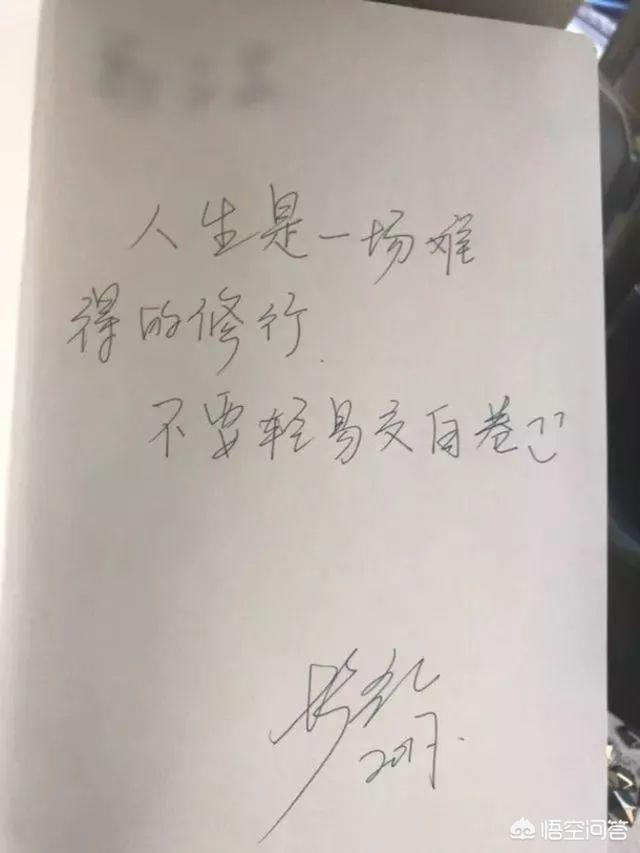 人生是一场难
得的修行.
不要轻易交白卷
2017.
悟空问答